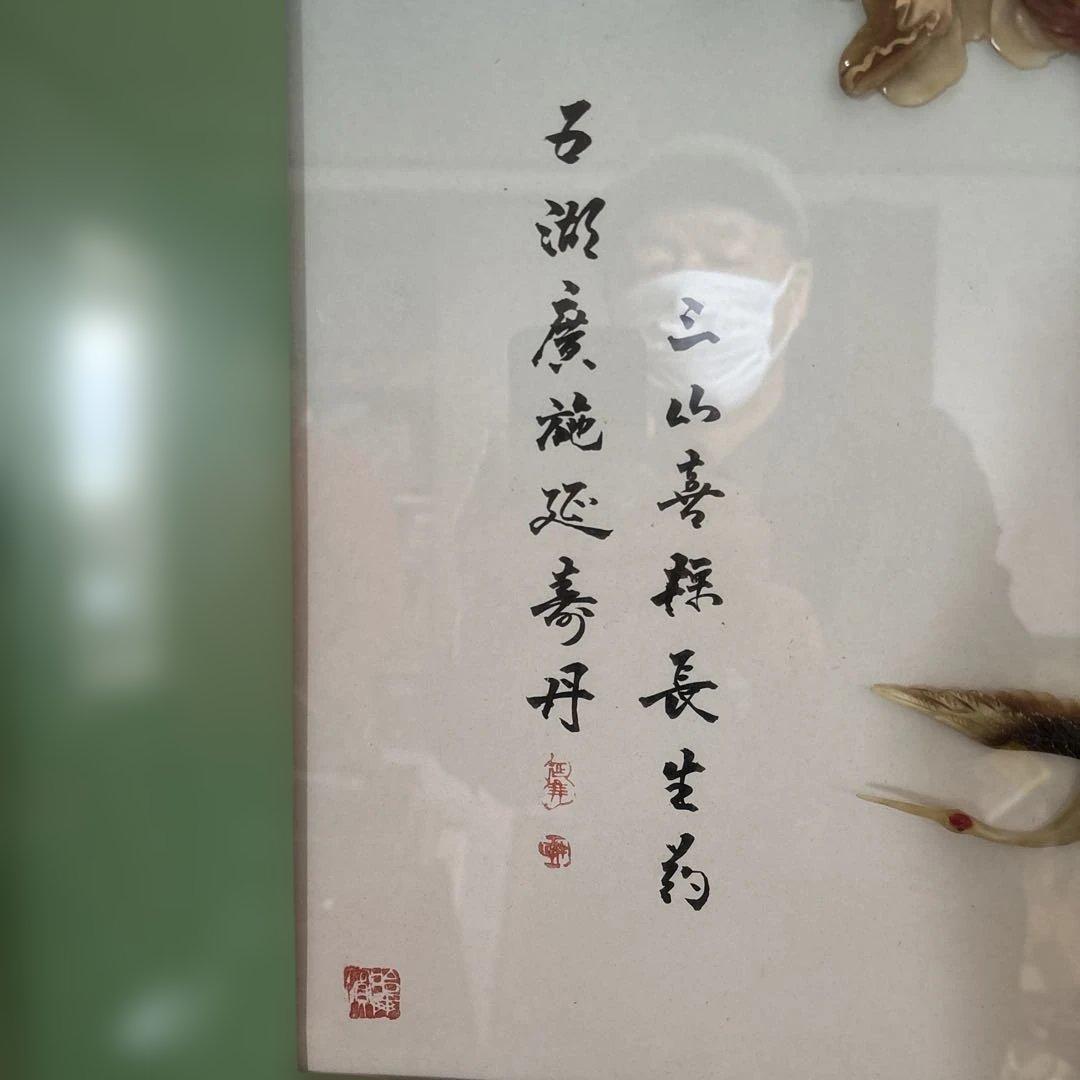 三山喜採長生药
五湖廣施延壽丹